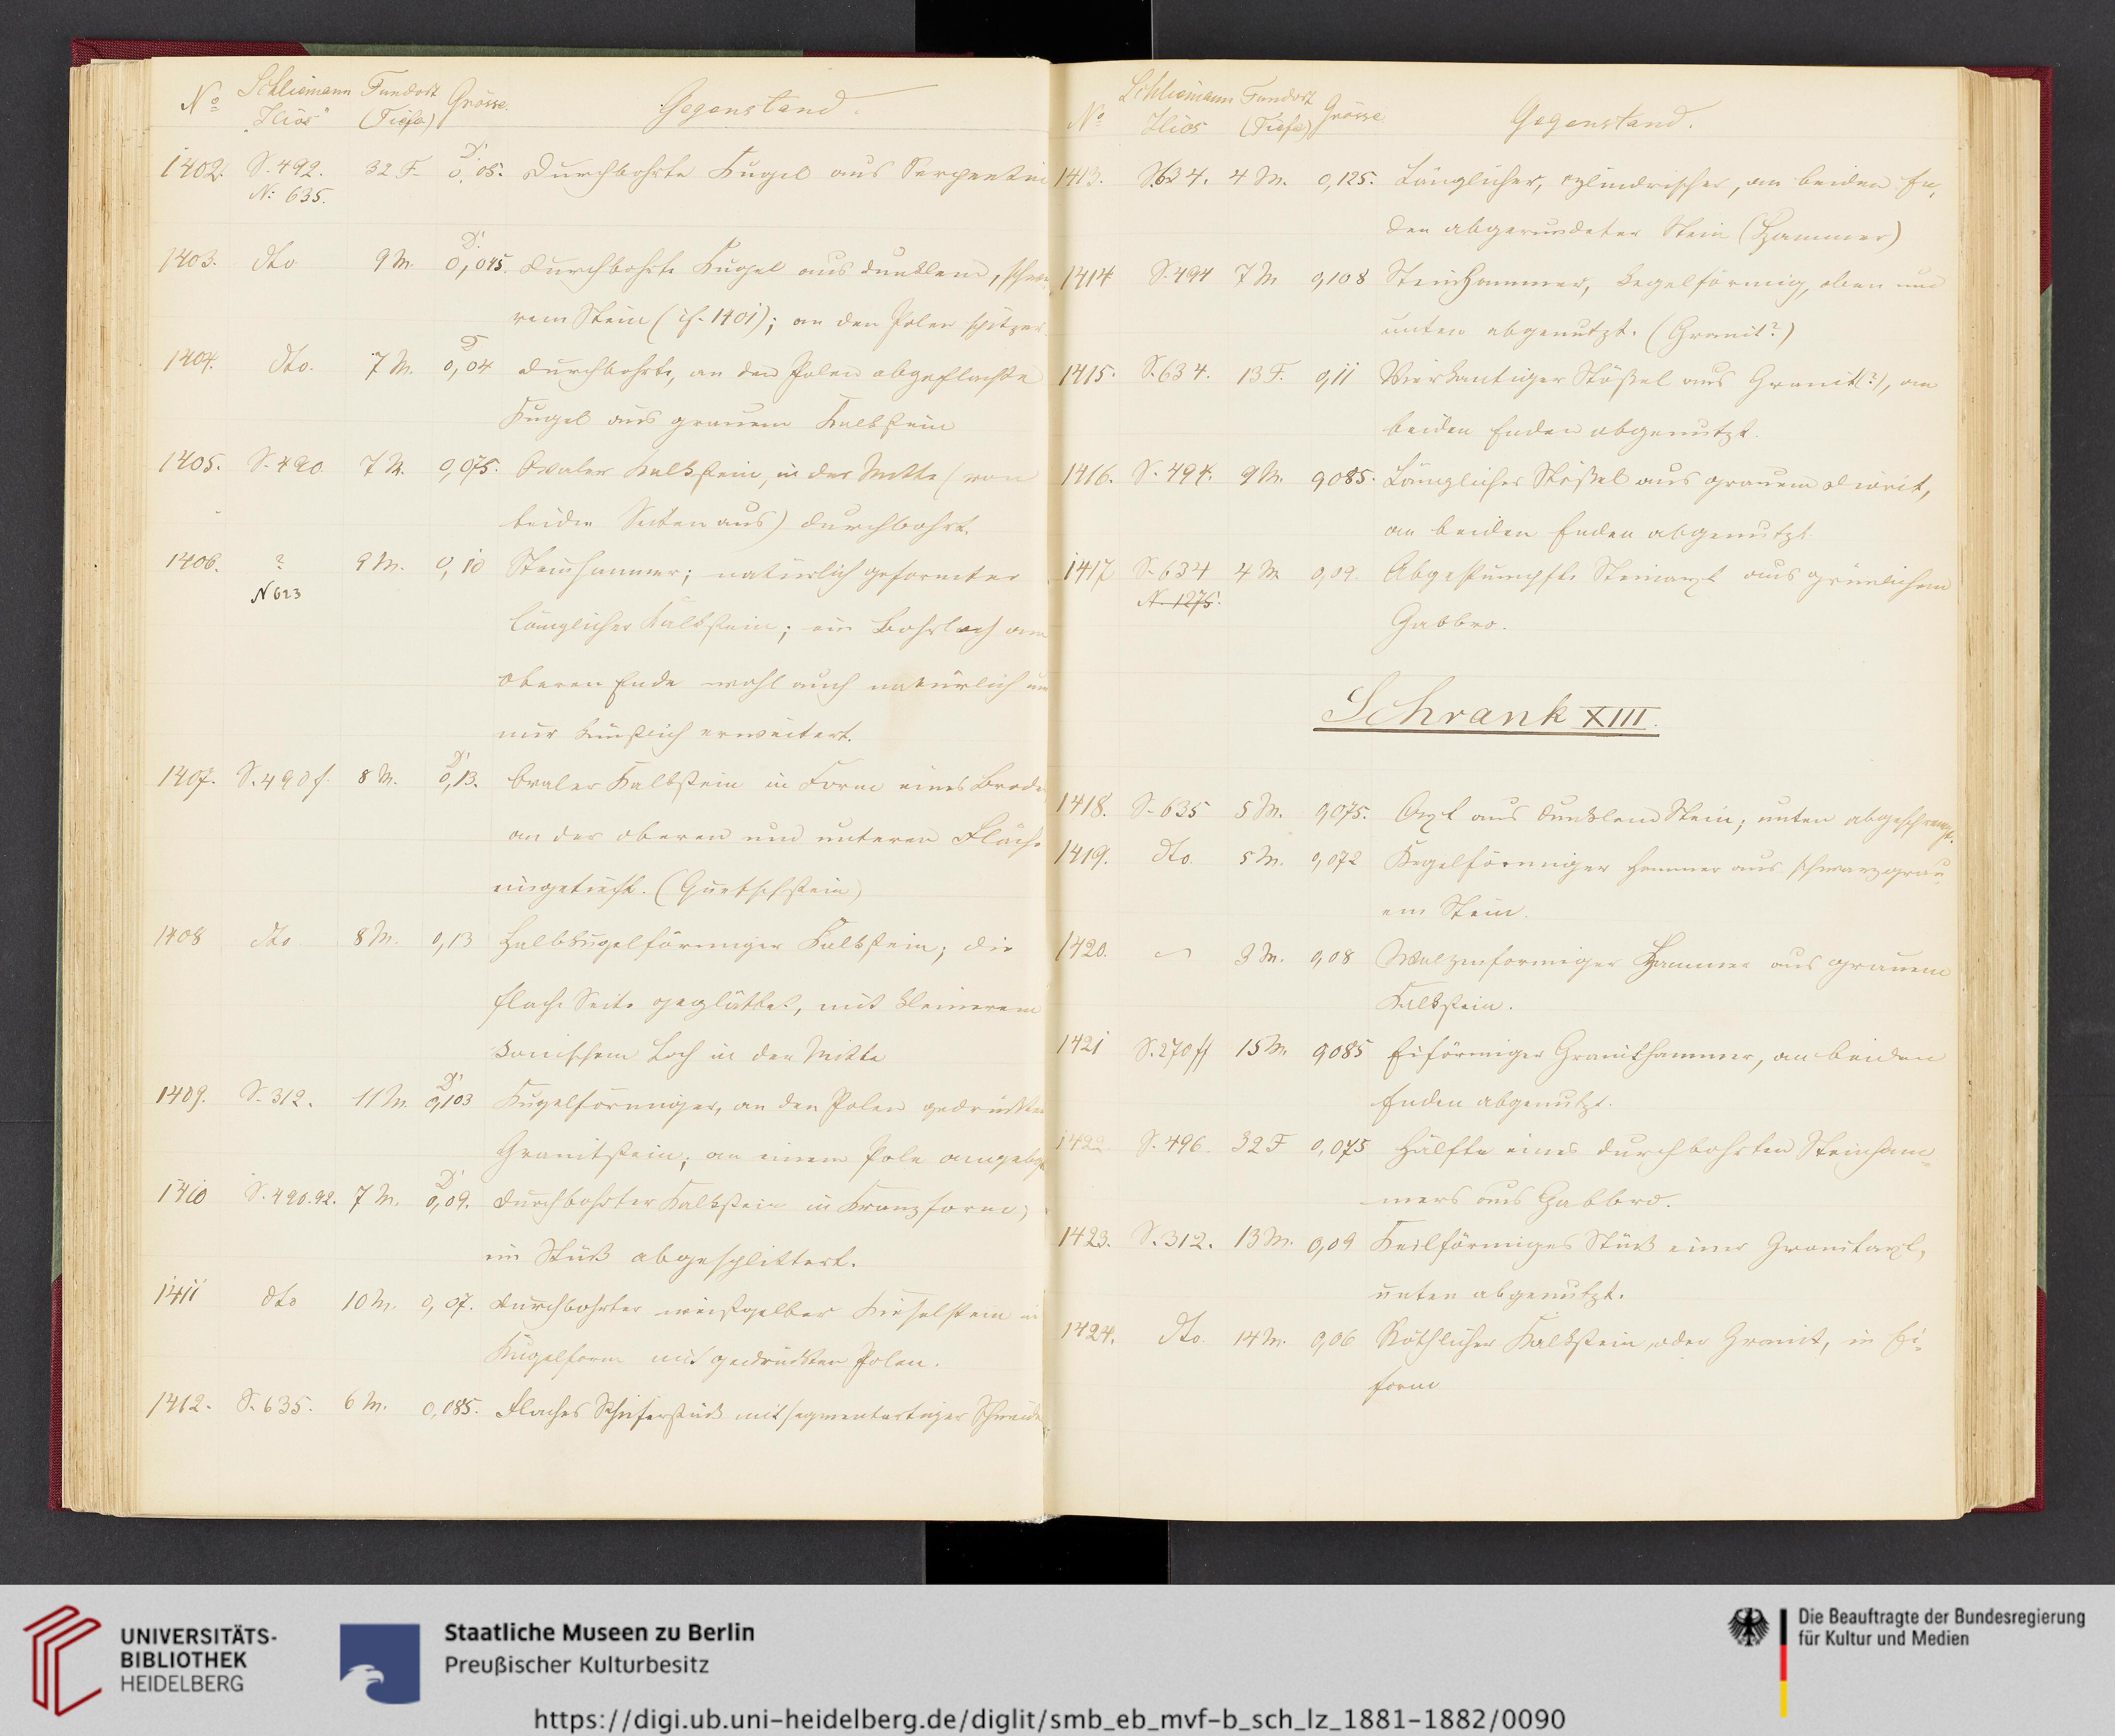 No Schliemann Fundort Grösse. Gegenstand.
"Ilios" (Tiefe)
1402. S. 492. 32 F. D' 0,05. Durchbohrte Kugel aus Serpentin
N: 635.
1403. dto 9 M. D' 0,045. Durchbohrte Kugel aus dunklem,
rem Stein (cf. 1401); an den Polen spitzer.
1404. dto. 7 M. D 0,04 durchbohrte, an den Polen abgeflachte
Kugel aus grauem Kalkstein
1405. S. 490 7 M. 0,075. Ovaler Kalkstein, in der Mitte (von
beiden Seiten aus) durchbohrt.
1406. ? 9 M. 0,10 Steinhammer; natürlich geformter
N 623
länglicher Kalkstein; ein Bohrloch am
oberen Ende wohl auch natürlich un
nur künstlich erweitert.
1407. S. 490 f. 8 M. D' 0,13. Ovaler Kalkstein in Form eines Brodes
an der oberen und unteren Fläche
eingetieft. (Quetschstein)
1408 dto 8 M. 0,13 Halbkugelförmiger Kalkstein; die
flache Seite geglättet, mit kleinerem
konischem Loch in der Mitte
1409. S. 312. 11 M. D' 0,103 Kugelförmiger, an den Polen gedrückter
Granitstein; an einem Pole
1410 S. 490.92. 7 M. D' 0,09. durchbohrter Kalkstein in Kranzform;
ein Stück abgesplittert.
1411 dto 10 M. 0,07. durchbohrter weissgelber Kieselstein in
Kugelform mit gedrückten Polen.
1412. S. 635. 6 M. 0,085. Flaches Schieferstück mit segmentartiger Schneide
No Schliemann Fundort Grösse Gegenstand.
Ilios (Tiefe)
1413. S. 634. 4 M. 0,125. Länglicher, cylindrischer, an beiden En,
den abgerundeter Stein (Hammer)
1414 S. 494 7 M 0,108 Steinhammer, kegelförmig, oben und
unten abgenutzt. (Granit?)
1415. S. 634. 13 F. 0,11 Vierkantiger Stößel aus Granit(?), an
beiden Enden abgenutzt.
1416. S. 494. 9 M. 0,085. Länglicher Stößel aus grauem Diorit,
an beiden Enden abgenutzt
1417 S. 634 4 M 0,09. Abgestumpfte Steinaxt aus grünlichem
N. 1275.
Gabbro.
Schrank XIII.
1418. S. 635 5 M. 0,075. Axt aus dunklem Stein; unten
1419. dto. 5 M. 0,072 Kegelförmiger Hammer aus schwarzgrau=
em Stein.
1420. 3 M. 0,08 Walzenförmiger Hammer aus grauem
Kalkstein.
1421 S. 270 ff 15 M. 0,085 Eiförmiger Granithammer, an beiden
Enden abgenutzt.
1422 S. 496. 32 F 0,075 Hälfte eines durchbohrten Steinham=
mers aus Gabbro.
1423. S. 312. 13 M. 0,09 Keilförmiges Stück einer Granitaxt,
unten abgenutzt.
1424. dto. 14 M. 0,06 Röthlicher Kalkstein oder Granit, in Ei=
form
UNIVERSITÄTS-
BIBLIOTHEK
HEIDELBERG
Staatliche Museen zu Berlin
Preußischer Kulturbesitz
Die Beauftragte der Bundesregierung
für Kultur und Medien
https://digi.ub.uni-heidelberg.de/diglit/smb_eb_mvf-b_sch_lz_1881-1882/0090